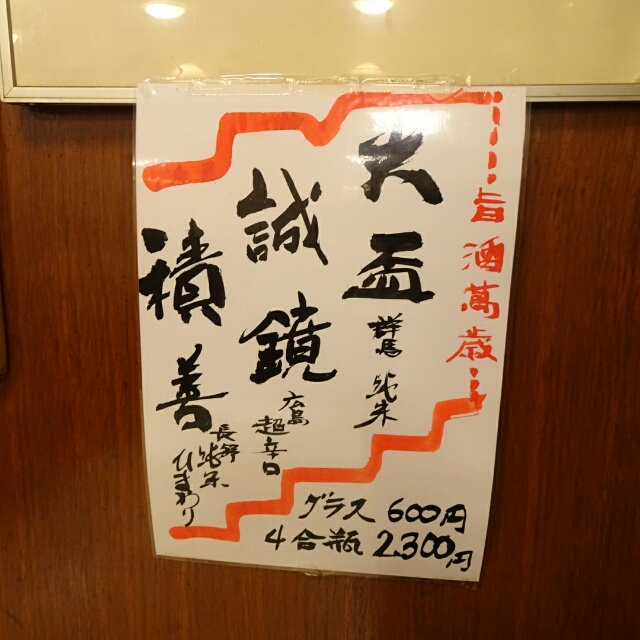 旨酒萬歳
大盃
群馬 純米
誠鏡
広島
超辛口
積善
長野
純米
ひまわり
グラス 600円
4合瓶 2,300円